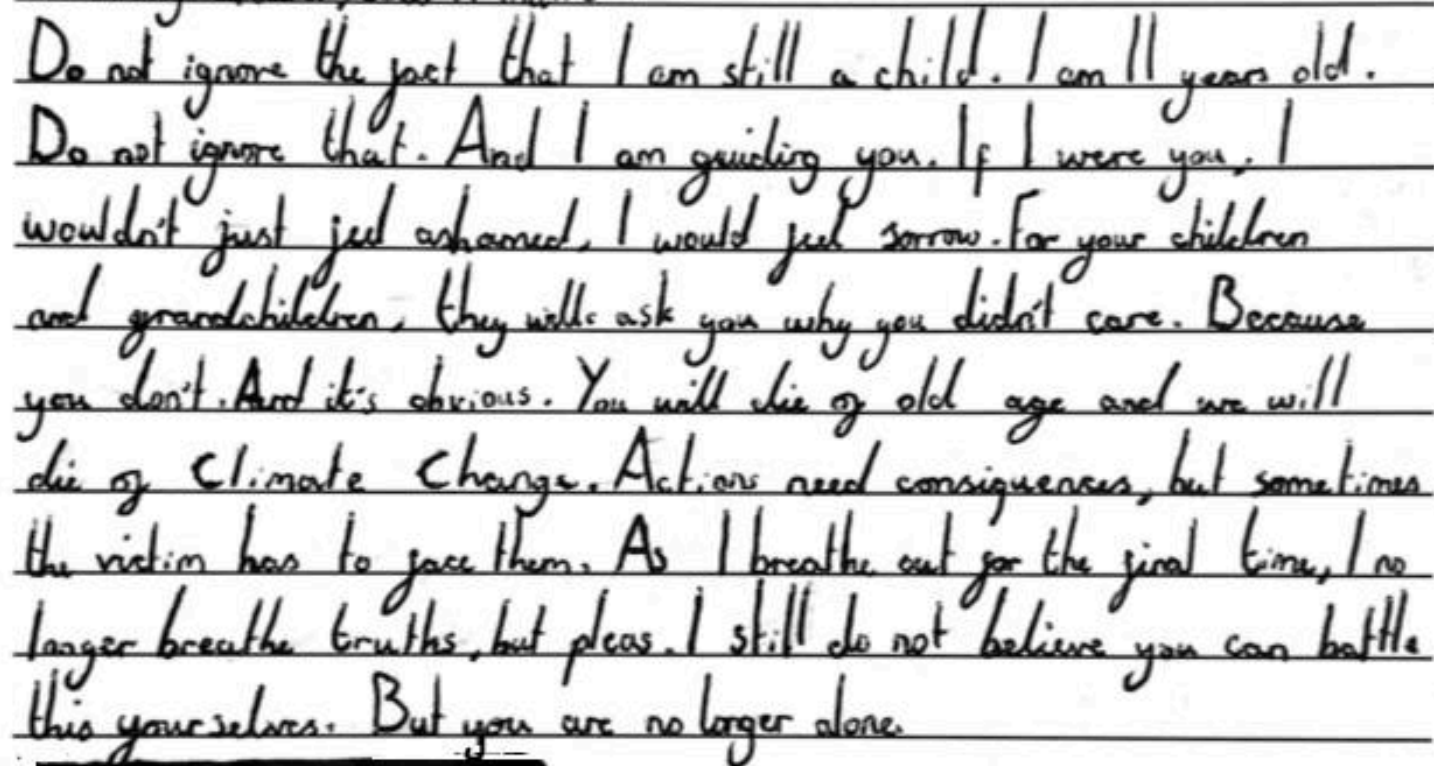 Do not ignore the fact that I am still a child. I am 11 years old.
Do not ignore that. And I am guiding you. If I were you, I
wouldn't just feel ashamed, I would feel sorrow. For your children
and grandchildren, they will ask you why you didn't care. Because
you don't. And it's obvious. You will die of old age and we will
die of Climate Change. Actions need consiquences, but sometimes
the victim has to face them. As I breathe out for the final time, I no
longer breathe truths, but pleas. I still do not believe you can battle
this yourselves. But you are no longer alone.